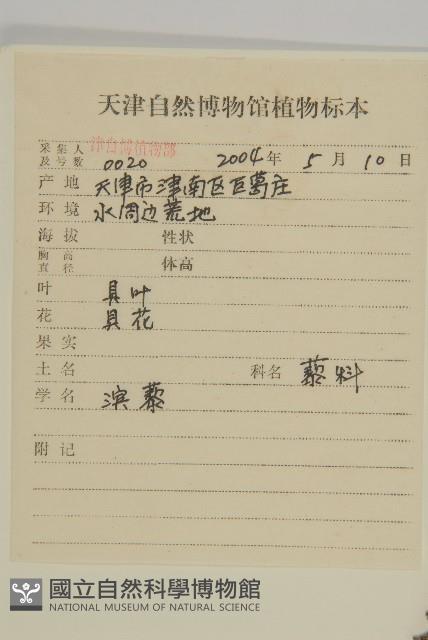 天津自然博物馆植物标本
采集人及号数 津自博植物部 0020 2004年 5月 10日
产地 天津市津南区巨葛庄
环境 水周边荒地
海拔 性状
胸高直径 体高
叶 具叶
花 具花
果实
土名 科名 藜科
学名 滨藜
附记
國立自然科學博物館
NATIONAL MUSEUM OF NATURAL SCIENCE